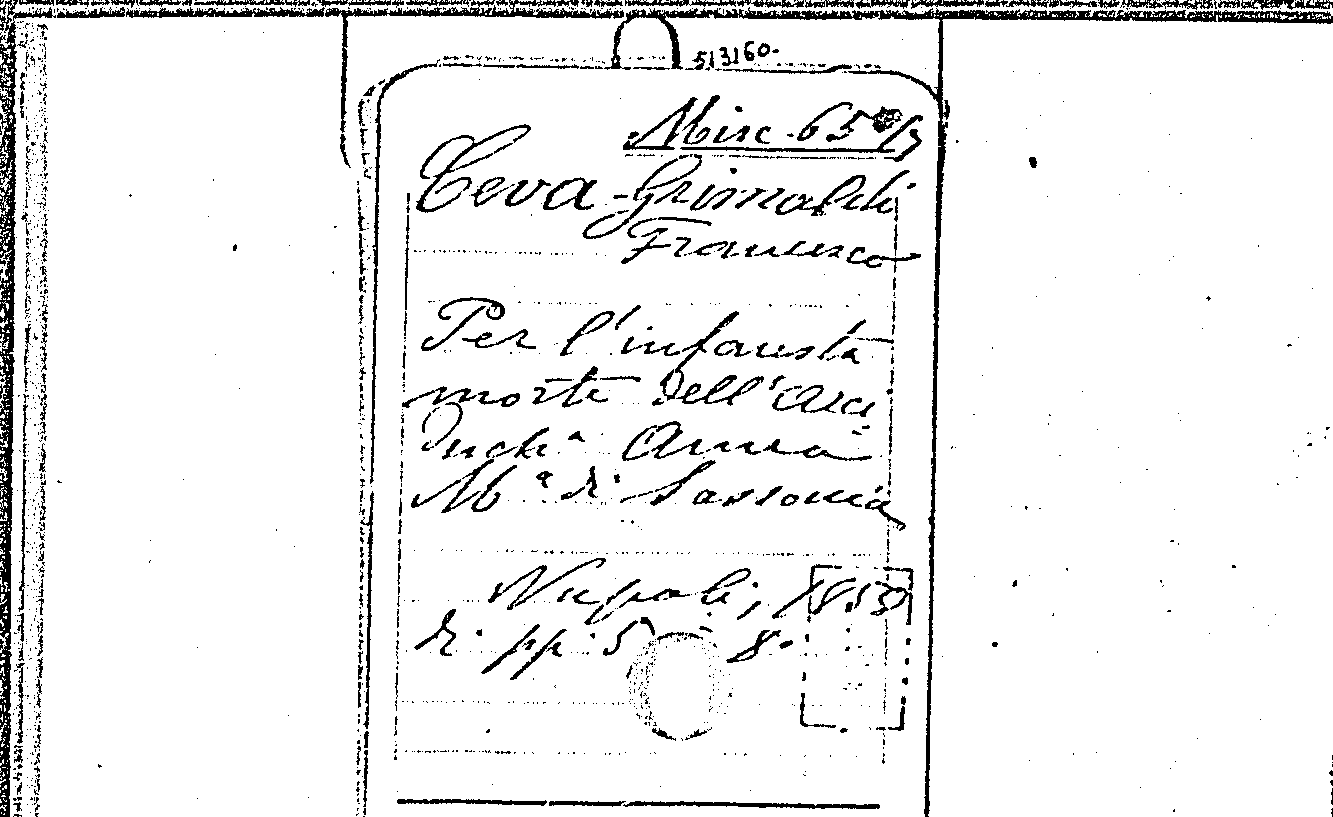 513160.
Misc. 65 /3
Ceva-Grimaldi
Francesco
Per l'infausta
morte dell'Arci=
duch.ª Anna
M.ª di Sassonia
Napoli, 1859
di pp. 5 8.